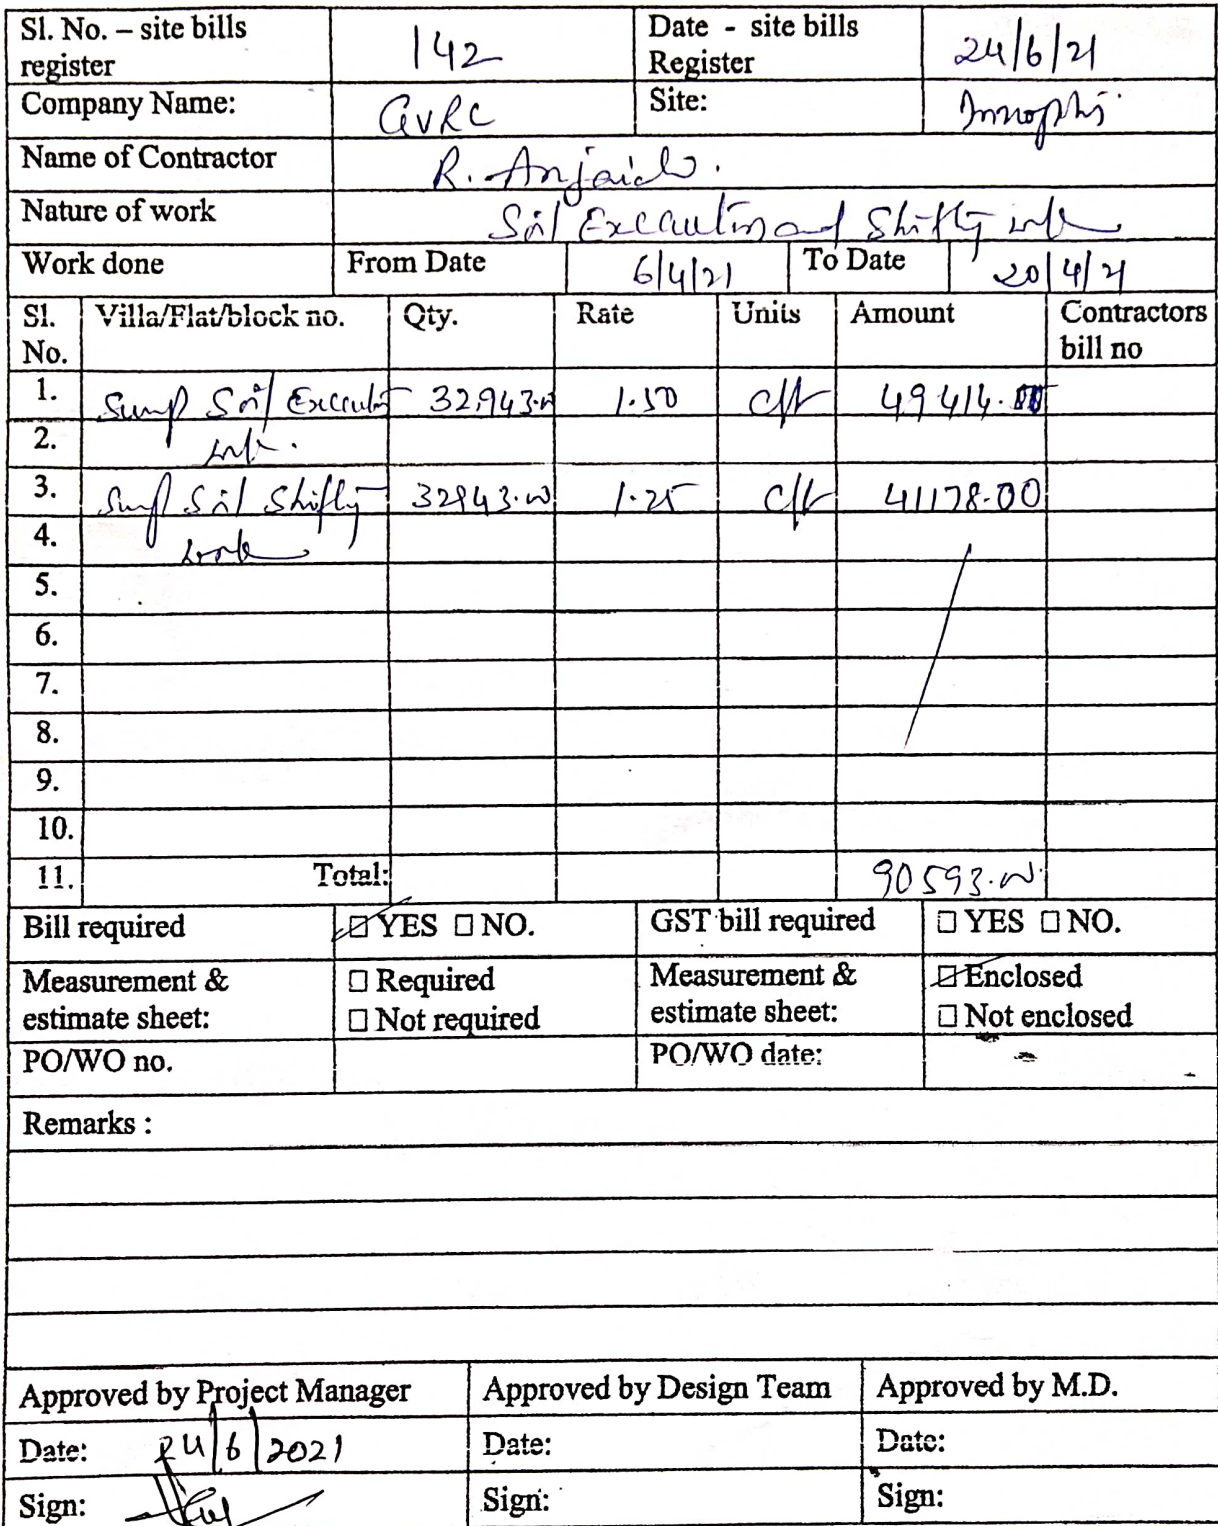 Sl. No. – site bills register 142 Date - site bills Register 24/6/21
Company Name: GVRC Site: Innopolis
Name of Contractor R. Anjaiah.
Nature of work Soil Excavation and Shifting work
Work done From Date 6/4/21 To Date 20/4/21
Sl. No. Villa/Flat/block no. Qty. Rate Units Amount Contractors bill no
1. Sump Soil Excavation 32,943.00 1.50 cft 49414.00
2. work.
3. Sump Soil Shifting 32943.00 1.25 cft 41178.00
4. work
5.
6.
7.
8.
9.
10.
11. Total: 90593.00
Bill required ☑ YES ☐ NO. GST bill required ☐ YES ☐ NO.
Measurement & estimate sheet: ☐ Required ☐ Not required Measurement & estimate sheet: ☑ Enclosed ☐ Not enclosed
PO/WO no. PO/WO date:
Remarks :
Approved by Project Manager Approved by Design Team Approved by M.D.
Date: 24/6/2021 Date: Date:
Sign: Sign: Sign: